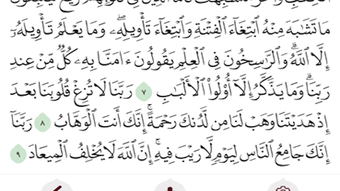 مَا تَشَٰبَهَ مِنۡهُ ٱبۡتِغَآءَ ٱلۡفِتۡنَةِ وَٱبۡتِغَآءَ تَأۡوِيلِهِۦۖ وَمَا يَعۡلَمُ تَأۡوِيلَهُۥٓ
إِلَّا ٱللَّهُۗ وَٱلرَّٰسِخُونَ فِي ٱلۡعِلۡمِ يَقُولُونَ ءَامَنَّا بِهِۦ كُلّٞ مِّنۡ عِندِ
رَبِّنَاۗ وَمَا يَذَّكَّرُ إِلَّآ أُوْلُواْ ٱلۡأَلۡبَٰبِ ٧ رَبَّنَا لَا تُزِغۡ قُلُوبَنَا بَعۡدَ
إِذۡ هَدَيۡتَنَا وَهَبۡ لَنَا مِن لَّدُنكَ رَحۡمَةًۚ إِنَّكَ أَنتَ ٱلۡوَهَّابُ ٨ رَبَّنَآ
إِنَّكَ جَامِعُ ٱلنَّاسِ لِيَوۡمٖ لَّا رَيۡبَ فِيهِۚ إِنَّ ٱللَّهَ لَا يُخۡلِفُ ٱلۡمِيعَادَ ٩